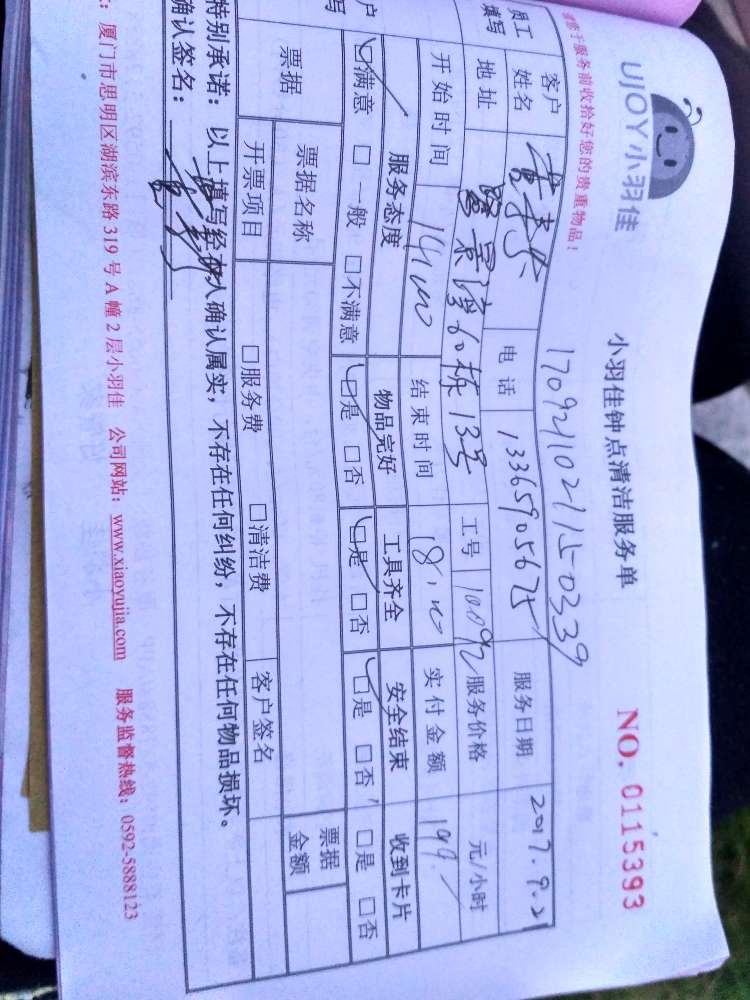 UJOY小羽佳
小羽佳钟点清洁服务单
NO. 0115393
请您于服务前收拾好您的贵重物品！
170921021150339
员工填写
客户姓名 电话 13365905675 服务日期 2017.9.21
地址 景 60栋13号 工号 10092 服务价格 元/小时
开始时间 14:00 结束时间 18:00 实付金额 199.
户
写
服务态度 物品完好 工具齐全 安全结束 收到卡片
☑满意 □一般 □不满意 ☑是 □否 ☑是 □否 ☑是 □否 □是 □否
票据 票据名称 票据金额
开票项目 □服务费 □清洁费 客户签名
特别承诺：以上填写经本人确认属实，不存在任何纠纷，不存在任何物品损坏。
确认签名：
：厦门市思明区湖滨东路319号A幢2层小羽佳 公司网站：www.xiaoyujia.com 服务监督热线：0592-5888123